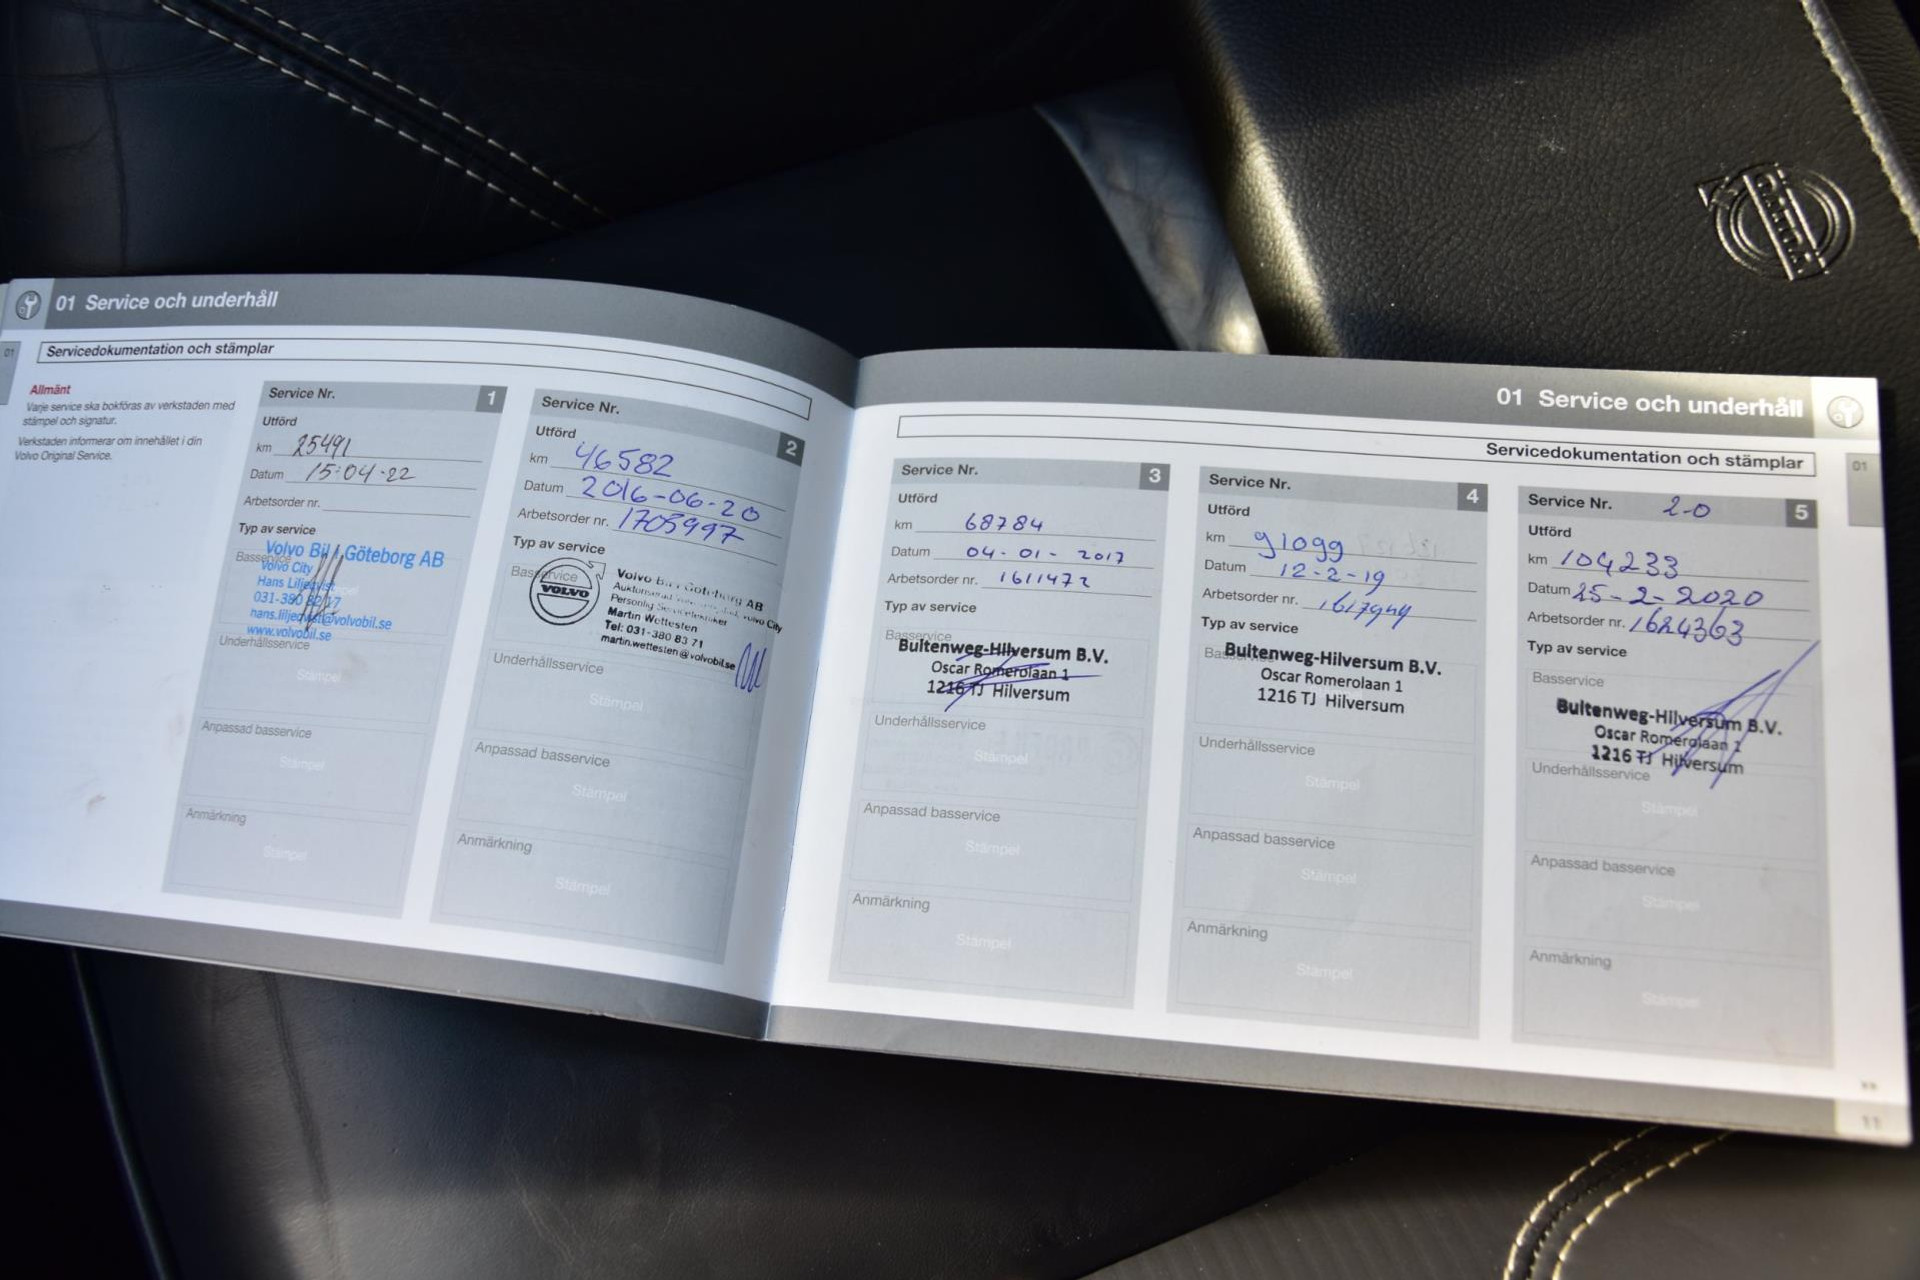 01 Service och underhåll
01
Servicedokumentation och stämplar
Allmänt
Varje service ska bokföras av verkstaden med
stämpel och signatur.
Verkstaden informerar om innehållet i din
Volvo Original Service.
Service Nr. 1
Utförd
km 25491
Datum 15-04-22
Arbetsorder nr.
Typ av service
Basservice
Volvo Bil i Göteborg AB
Volvo City
Hans Liljeqvist
031-380 82 17
hans.liljeqvist@volvobil.se
www.volvobil.se
Underhållsservice
Stämpel
Anpassad basservice
Stämpel
Anmärkning
Stämpel
Service Nr. 2
Utförd
km 46582
Datum 2016-06-20
Arbetsorder nr. 1705997
Typ av service
Basservice
VOLVO
Volvo Bil i Göteborg AB
Volvo City
Personlig Servicetekniker
Martin Wettesten
Tel: 031-380 83 71
martin.wettesten@volvobil.se
Underhållsservice
Stämpel
Anpassad basservice
Stämpel
Anmärkning
Stämpel
01 Service och underhåll
Servicedokumentation och stämplar
01
Service Nr. 3
Utförd
km 68784
Datum 04-01-2017
Arbetsorder nr. 1611472
Typ av service
Basservice
Bultenweg-Hilversum B.V.
Oscar Romerolaan 1
1216 TJ Hilversum
Underhållsservice
Stämpel
Anpassad basservice
Stämpel
Anmärkning
Stämpel
Service Nr. 4
Utförd
km 91099
Datum 12-2-19
Arbetsorder nr. 1617944
Typ av service
Basservice
Bultenweg-Hilversum B.V.
Oscar Romerolaan 1
1216 TJ Hilversum
Underhållsservice
Stämpel
Anpassad basservice
Stämpel
Anmärkning
Stämpel
Service Nr. 2-0 5
Utförd
km 104233
Datum 25-2-2020
Arbetsorder nr. 1624363
Typ av service
Basservice
Bultenweg-Hilversum B.V.
Oscar Romerolaan 1
1216 TJ Hilversum
Underhållsservice
Stämpel
Anpassad basservice
Stämpel
Anmärkning
Stämpel
11